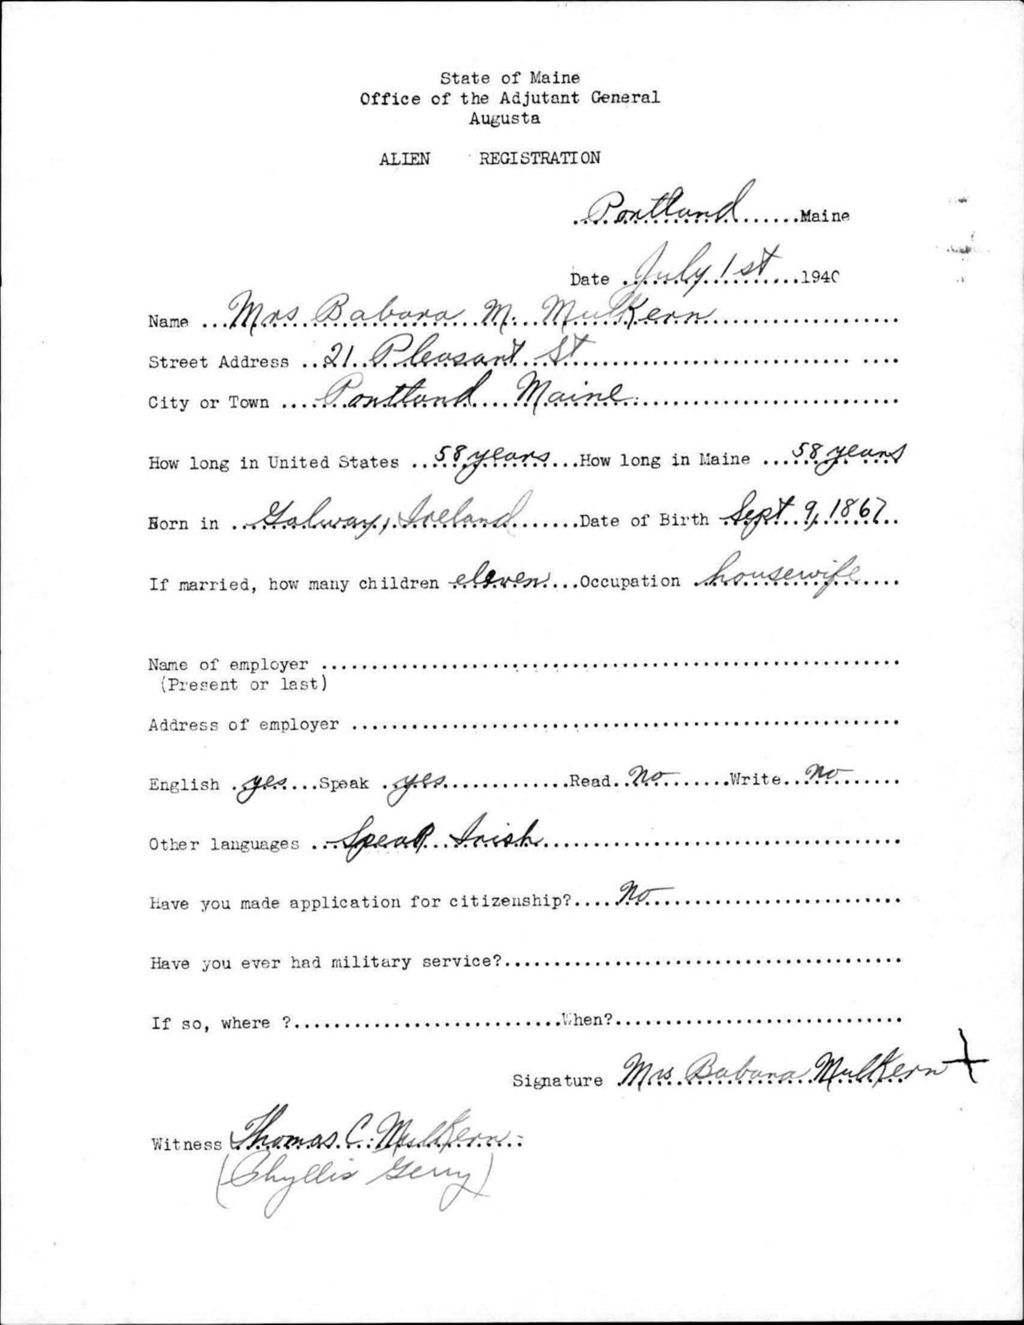 State of Maine
Office of the Adjutant General
Augusta
ALIEN REGISTRATION
Portland Maine
Date July 1st 1940
Name Mrs Babara M. Mulkern
Street Address 21 Pleasant St
City or Town Portland Maine
How long in United States 58 years How long in Maine 58 years
Born in Galway, Ireland Date of Birth Sept 9, 1867
If married, how many children eleven Occupation housewife
Name of employer
(Present or last)
Address of employer
English yes Speak yes Read No Write No
Other languages Speak Irish
Have you made application for citizenship? No
Have you ever had military service?
If so, where ? When?
Signature Mrs Babara Mulkern +
Witness Thomas C. Mulkern
(Phyllis Gerry)